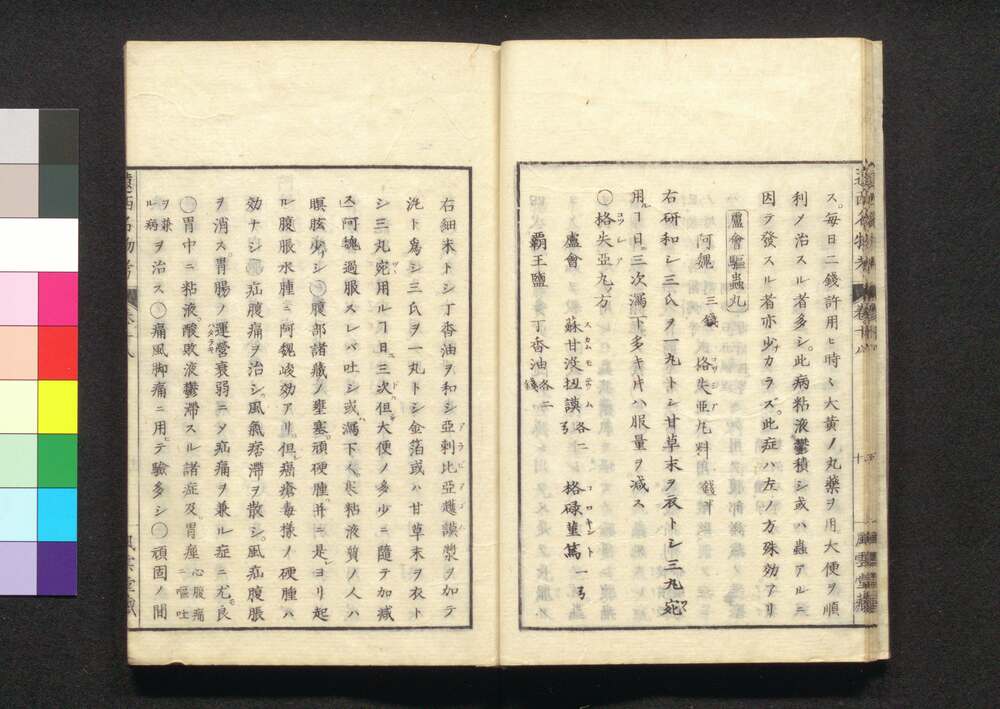 ス。毎日二錢許用ヒ時々大黄ノ丸藥ヲ用大便ヲ順
利メ治スル者多シ。此病粘液鬱積シ或ハ蟲アルニ
因テ發スル者亦少カラズ。此症ハ左ノ方殊効アリ
蘆會驅蟲丸
阿魏 三錢 格失亞丸料
右研和シ三氏ヲ一九トシ甘草末ヲ衣トシ三九宛
用ヿ日三次瀉下多キ片ハ服量ヲ減ス
○格失亞丸ノ方
蘆會 蘇甘没扭謨 各二 格碌菫篤 一
覇王鹽 丁香油 各二
右細末トシ丁香油ヲ和シ亞剌比亞護謨漿ヲ加テ
泥ト爲シ三氏ヲ一丸トシ金箔或ハ甘草末ヲ衣ト
シ三丸宛用ルヿ日三次但大便ノ多少ニ隨テ加減
ス阿魏過服スレバ吐シ或瀉下人粘液質ノ人ハ
瞑眩少シ○腹部諸臓ノ壅塞。頑硬腫。并ニ是ヨリ起
ル腹脹水腫ニ阿魏峻効アリ。但癌瘡毒様ノ硬腫ハ
効ナシ○疝腹痛ヲ治シ。風氣痞滯ヲ散シ。風疝腹脹
ヲ消ス。胃腸ノ運營衰弱ニメ疝痛ヲ兼ル症ニ尤良
○胃中ニ粘液。酸敗液鬱滯スル諸症及。胃痙 心腹痛ニ嘔吐
ヲ兼ル病ヲ治ス○痛風脚痛ニ用テ驗多シ○頑固ノ間
遠西名物考 卷十八
風雲堂藏